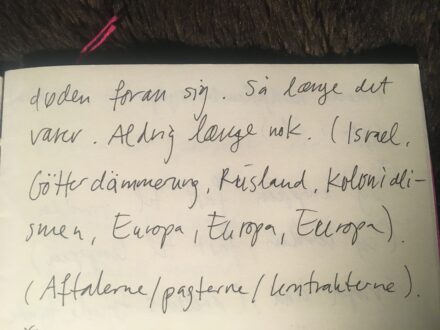 døden foran sig. Så længe det
varer. Aldrig længe nok. (Israel,
Götterdämmerung, Rusland, Koloniali-
smen, Europa, Europa, Europa).
(Aftalerne/pagterne/kontrakterne).